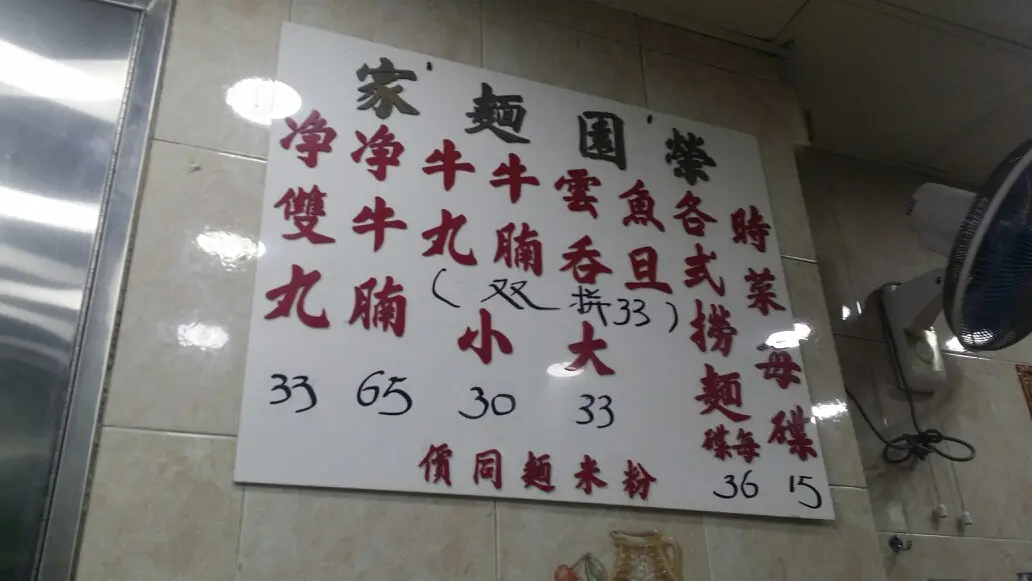 榮園麵家
時菜每碟
15
各式撈麵
每碟
36
魚旦
雲吞
牛腩
牛丸
(双拼33)
大
33
小
30
净牛腩
65
净雙丸
33
粉米麵同價